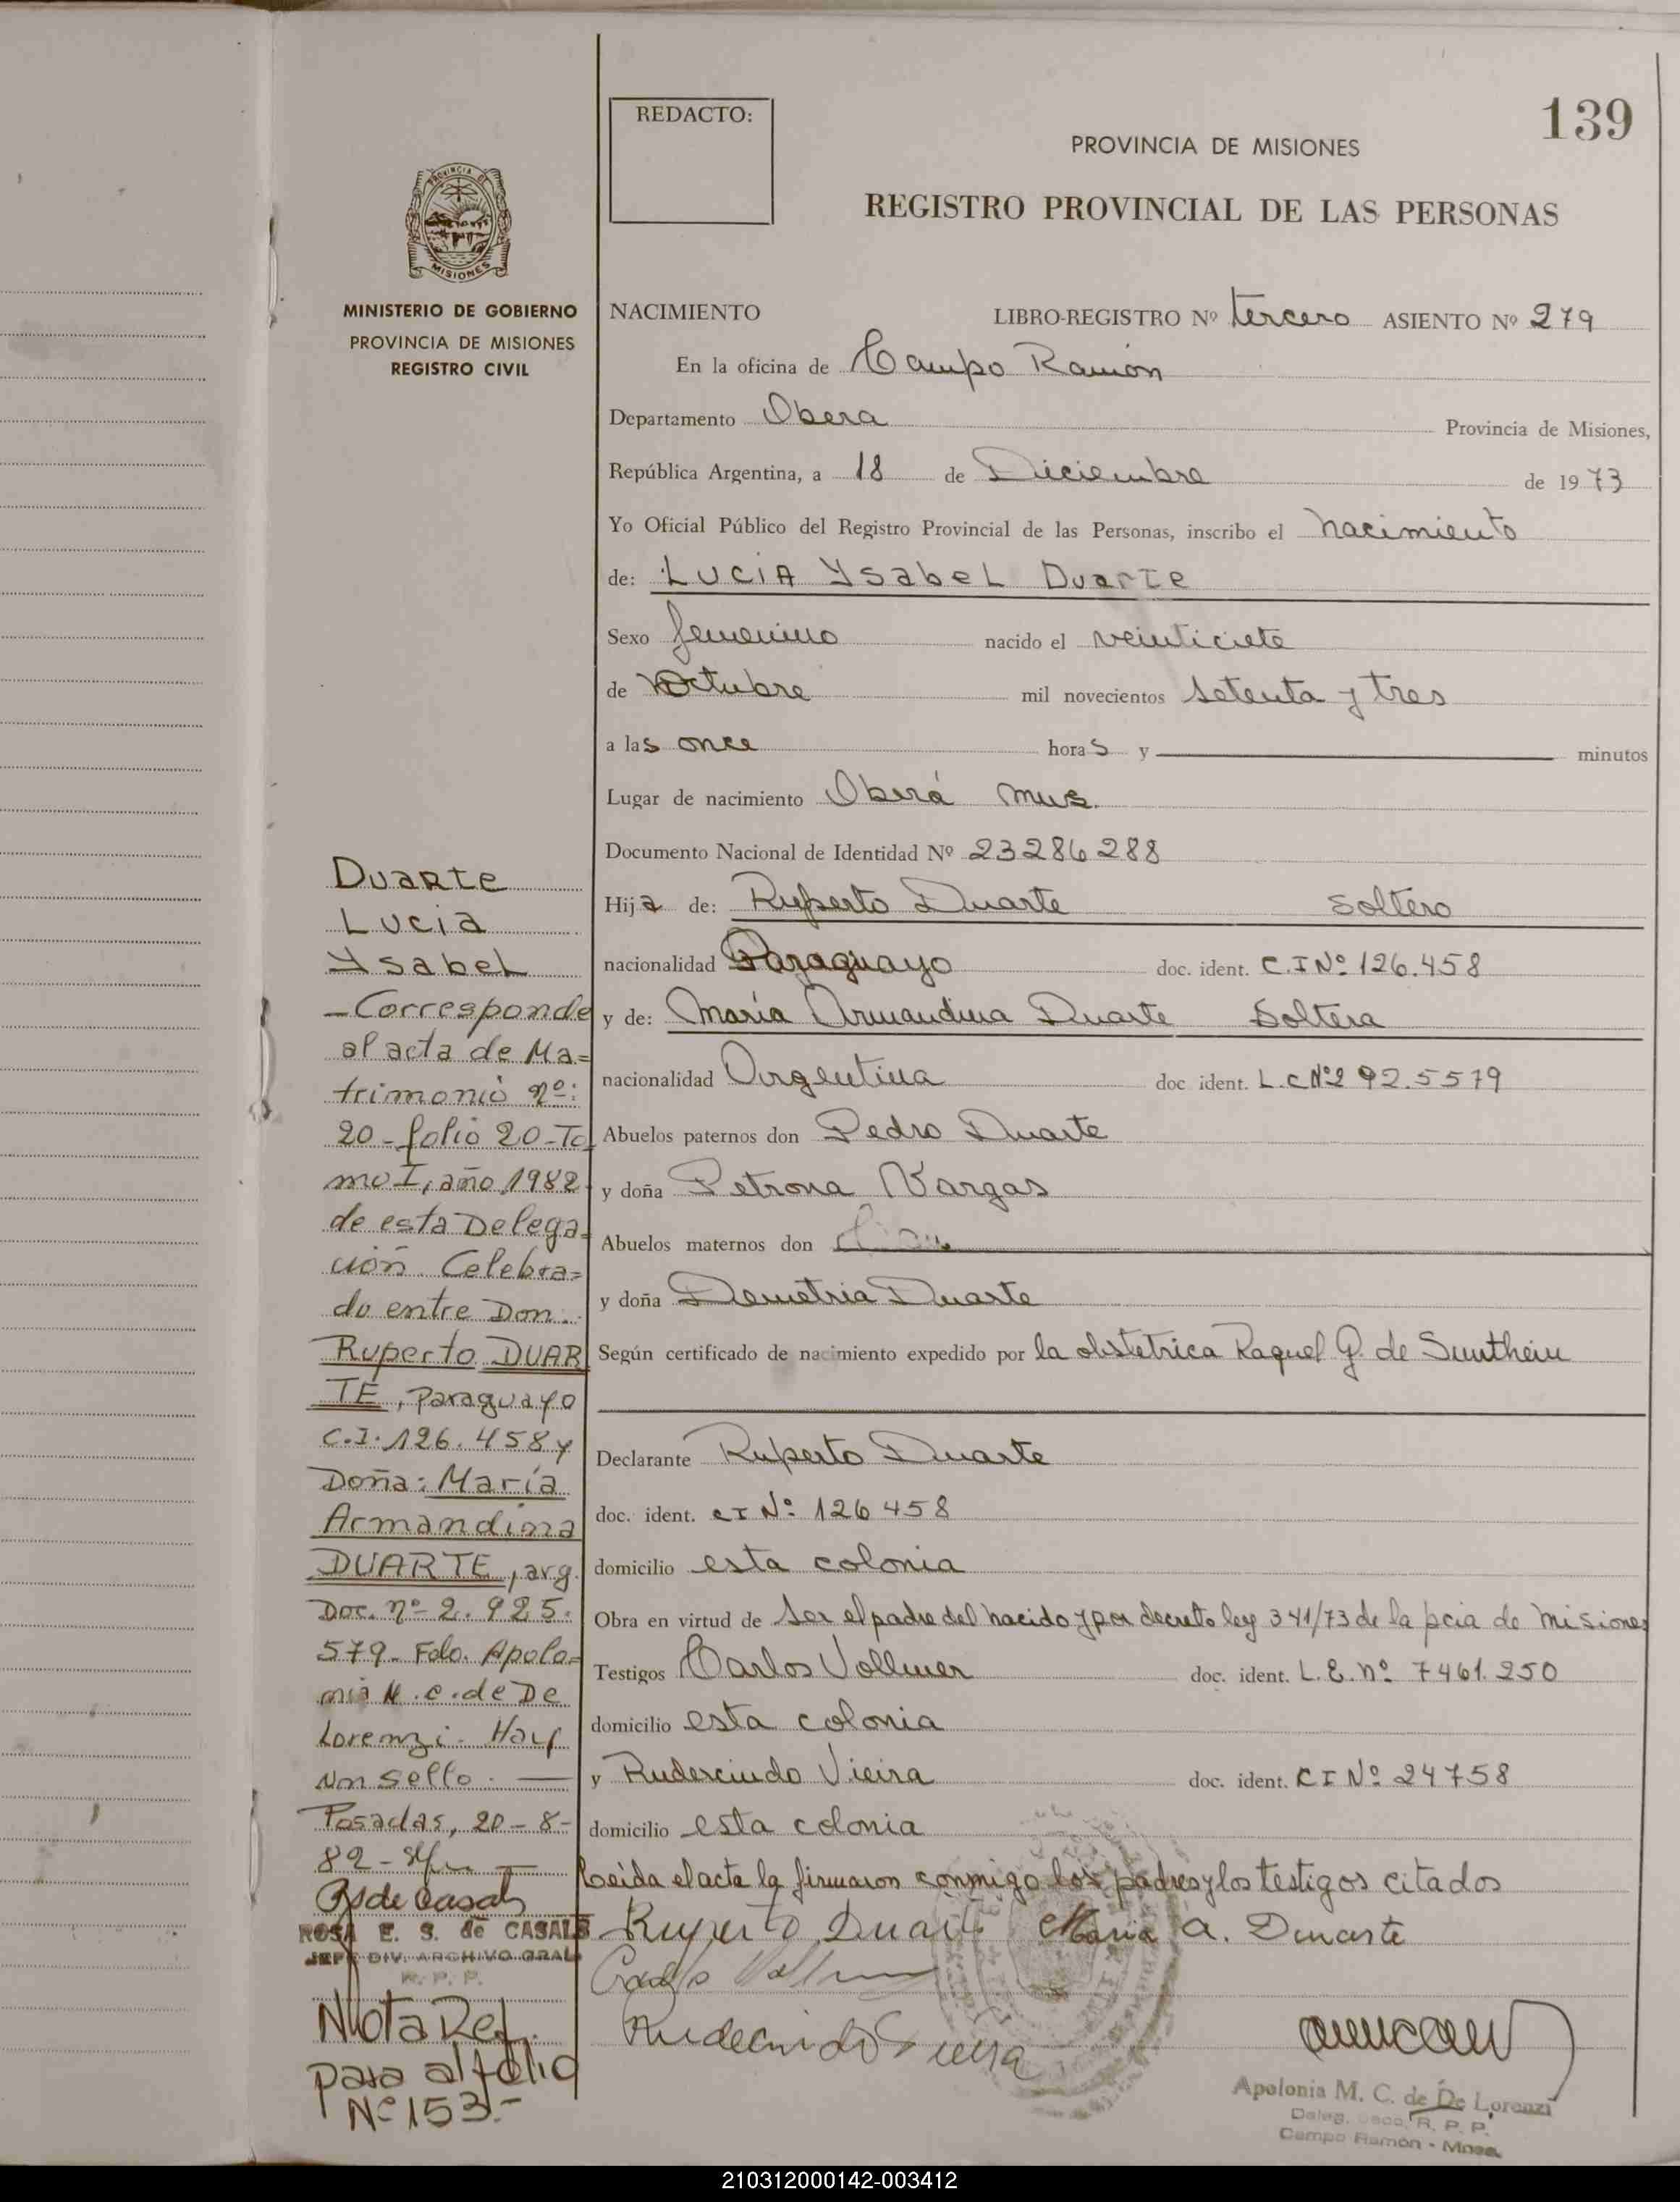 139
REDACTO:
PROVINCIA DE MISIONES
REGISTRO PROVINCIAL DE LAS PERSONAS
PROVINCIA DE
MISIONES
MINISTERIO DE GOBIERNO
PROVINCIA DE MISIONES
REGISTRO CIVIL
NACIMIENTO LIBRO-REGISTRO Nº tercero ASIENTO Nº 279
En la oficina de Campo Ramón
Departamento Obera Provincia de Misiones,
República Argentina, a 18 de Diciembre de 1973
Yo Oficial Público del Registro Provincial de las Personas, inscribo el nacimiento
de: LUCIA YsabeL Duarte
Sexo femenino nacido el veinticiete
de Octubre mil novecientos setenta y tres
a las once horas y minutos
Lugar de nacimiento Oberá Mnes.
Documento Nacional de Identidad Nº 23286288
Hija de: Ruperto Duarte soltero
nacionalidad Paraguayo doc. ident. C.I Nº 126.458
y de: María Armandina Duarte Soltera
nacionalidad Argentina doc ident. L.C Nº 2 92.5579
Abuelos paternos don Pedro Duarte
y doña Petrona Vargas
Abuelos maternos don
y doña Demetria Duarte
Según certificado de nacimiento expedido por la obstetrica Raquel G. de Sunthein
Declarante Ruperto Duarte
doc. ident. CI Nº 126458
domicilio esta colonia
Obra en virtud de ser el padre del nacido y por decreto ley 341/73 de la pcia de Misiones
Testigos Carlos Vollmer doc. ident. L.E. nº 7461.250
domicilio esta colonia
y Rudercindo Vieira doc. ident. CI Nº 24758
domicilio esta colonia
Leida el acta la firmaron conmigo los padres y los testigos citados
Ruperto Duarte Maria A. Duarte
Carlos Vollmer
Apolonia M. C. de De Lorenzi
R. P. P.
Campo Ramón - Mnes.
Duarte
Lucia
YsabeL
- Corresponde
al acta de Ma=
trimonio nº:
20 - folio 20 - To
mo I, año 1982
de esta Delega=
ción. Celebra=
do entre Don.
Ruperto DUAR
TE, Paraguayo
C.I. 126.458 y
Doña: María
Armandina
DUARTE, arg.
Doc. nº 2.925.
579. Fdo. Apolo=
nia M.C. de De
Lorenzi. Hay
un sello.
Posadas, 20-8-
82-
R. S. de Casals
ROSA E. S. de CASALS
JEFE DIV. ARCHIVO GRAL
R. P. P.
Nota Ref.
pasa al folio
Nº 153.-
210312000142-003412